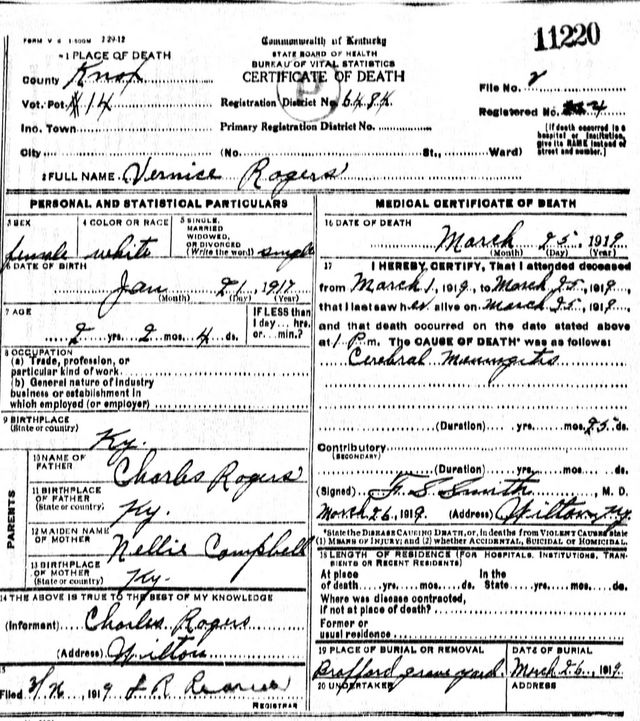 FORM V S 1-500M 1-29-12
11220
Commonwealth of Kentucky
STATE BOARD OF HEALTH
BUREAU OF VITAL STATISTICS
CERTIFICATE OF DEATH
1 PLACE OF DEATH
County Knox
File No. 2
Vot. Pct. 14
Registration District No. 6484
Registered No. 4
Inc. Town
Primary Registration District No.
City (No. St., Ward)
(If death occurred in a hospital or institution, give its NAME instead of street and number.)
2 FULL NAME Vernice Rogers
PERSONAL AND STATISTICAL PARTICULARS
3 SEX 4 COLOR OR RACE 5 SINGLE, MARRIED WIDOWED, OR DIVORCED (Write the word)
female white single
6 DATE OF BIRTH
Jan 21, 1917
(Month) (Day) (Year)
7 AGE IF LESS than 1 day ... hrs. or ... min.?
2 yrs. 2 mos. 4 ds.
8 OCCUPATION
(a) Trade, profession, or
particular kind of work
(b) General nature of industry
business or establishment in
which employed (or employer)
9 BIRTHPLACE
(State or country)
Ky.
PARENTS
10 NAME OF FATHER Charles Rogers
11 BIRTHPLACE OF FATHER (State or country) Ky.
12 MAIDEN NAME OF MOTHER Nellie Campbell
13 BIRTHPLACE OF MOTHER (State or country) Ky.
14 THE ABOVE IS TRUE TO THE BEST OF MY KNOWLEDGE
(Informant) Charles Rogers
(Address) Wilton
15
Filed 3/26, 1919
REGISTRAR
MEDICAL CERTIFICATE OF DEATH
16 DATE OF DEATH
March 25, 1919
(Month) (Day) (Year)
17 I HEREBY CERTIFY, That I attended deceased
from March 1, 1919, to March 25, 1919,
that I last saw her alive on March 25, 1919,
and that death occurred on the date stated above
at 1 P.m. The CAUSE OF DEATH* was as follows:
Cerebral Meningitis
(Duration) yrs. mos. 25 ds.
Contributory
(SECONDARY)
(Duration) yrs. mos. ds.
(Signed) F. S. Smith, M. D.
March 26, 1919. (Address) Wilton, Ky.
*State the DISEASE CAUSING DEATH, or, in deaths from VIOLENT CAUSES state
(1) MEANS OF INJURY; and (2) whether ACCIDENTAL, SUICIDAL or HOMICIDAL.
18 LENGTH OF RESIDENCE (FOR HOSPITALS, INSTITUTIONS, TRANSIENTS OR RECENT RESIDENTS)
At place In the
of death yrs. mos. ds. State yrs. mos. ds.
Where was disease contracted,
if not at place of death?
Former or
usual residence
19 PLACE OF BURIAL OR REMOVAL DATE OF BURIAL
grave yard. March 26, 1919.
20 UNDERTAKER ADDRESS